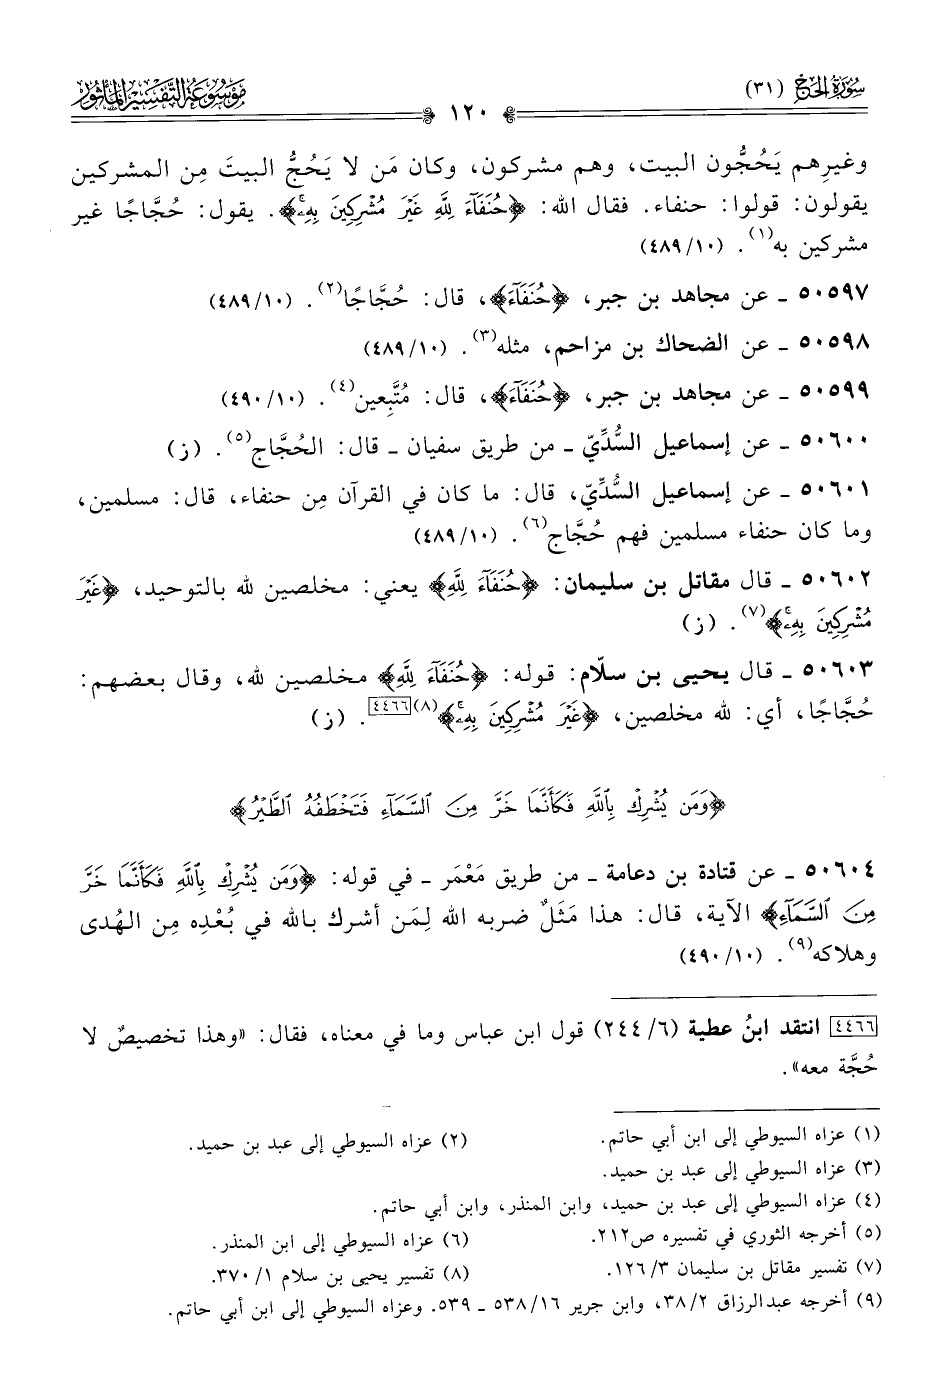 سُورَةُ الحَجّ (٣١)
١٢٠
مَوْسُوعَة التَّفْسِير المَأْثُور
وغيرِهم يَحُجُّون البيت، وهم مشركون، وكان مَن لا يَحُجُّ البيتَ مِن المشركين
يقولون: قولوا: حنفاء. فقال الله: ﴿حُنَفَآءَ لِلَّهِ غَيْرَ مُشْرِكِينَ بِهِۦ﴾. يقول: حُجَّاجًا غير
مشركين به(١). (٤٨٩/١٠)
٥٠٥٩٧ ـ عن مجاهد بن جبر، ﴿حُنَفَآءَ﴾، قال: حُجَّاجًا(٢). (٤٨٩/١٠)
٥٠٥٩٨ ـ عن الضحاك بن مزاحم، مثله(٣). (٤٨٩/١٠)
٥٠٥٩٩ ـ عن مجاهد بن جبر، ﴿حُنَفَآءَ﴾، قال: مُتَّبِعين(٤). (٤٩٠/١٠)
٥٠٦٠٠ ـ عن إسماعيل السُّدِّيّ ـ من طريق سفيان ـ قال: الحُجَّاج(٥). (ز)
٥٠٦٠١ ـ عن إسماعيل السُّدِّيّ، قال: ما كان في القرآن مِن حنفاء، قال: مسلمين،
وما كان حنفاء مسلمين فهم حُجَّاج(٦). (٤٨٩/١٠)
٥٠٦٠٢ ـ قال مقاتل بن سليمان: ﴿حُنَفَآءَ لِلَّهِ﴾ يعني: مخلصين لله بالتوحيد، ﴿غَيْرَ
مُشْرِكِينَ بِهِۦ﴾(٧). (ز)
٥٠٦٠٣ ـ قال يحيى بن سلّام: قوله: ﴿حُنَفَآءَ لِلَّهِ﴾ مخلصين لله، وقال بعضهم:
حُجَّاجًا، أي: لله مخلصين، ﴿غَيْرَ مُشْرِكِينَ بِهِۦ﴾(٨)[٤٤٦٦]. (ز)
﴿وَمَن يُشْرِكْ بِٱللَّهِ فَكَأَنَّمَا خَرَّ مِنَ ٱلسَّمَآءِ فَتَخْطَفُهُ ٱلطَّيْرُ﴾
٥٠٦٠٤ ـ عن قتادة بن دعامة ـ من طريق مَعْمَر ـ في قوله: ﴿وَمَن يُشْرِكْ بِٱللَّهِ فَكَأَنَّمَا خَرَّ
مِنَ ٱلسَّمَآءِ﴾ الآية، قال: هذا مَثَلٌ ضربه الله لِمَن أشرك بالله في بُعْدِه مِن الهُدى
وهلاكه(٩). (٤٩٠/١٠)
[٤٤٦٦] انتقد ابنُ عطية (٦/ ٢٤٤) قول ابن عباس وما في معناه، فقال: «وهذا تخصيصٌ لا
حُجَّة معه».
(١) عزاه السيوطي إلى ابن أبي حاتم.
(٢) عزاه السيوطي إلى عبد بن حميد.
(٣) عزاه السيوطي إلى عبد بن حميد.
(٤) عزاه السيوطي إلى عبد بن حميد، وابن المنذر، وابن أبي حاتم.
(٥) أخرجه الثوري في تفسيره ص٢١٢.
(٦) عزاه السيوطي إلى ابن المنذر.
(٧) تفسير مقاتل بن سليمان ٣/ ١٢٦.
(٨) تفسير يحيى بن سلام ١/ ٣٧٠.
(٩) أخرجه عبدالرزاق ٢/ ٣٨، وابن جرير ١٦/ ٥٣٨ ـ ٥٣٩. وعزاه السيوطي إلى ابن أبي حاتم.